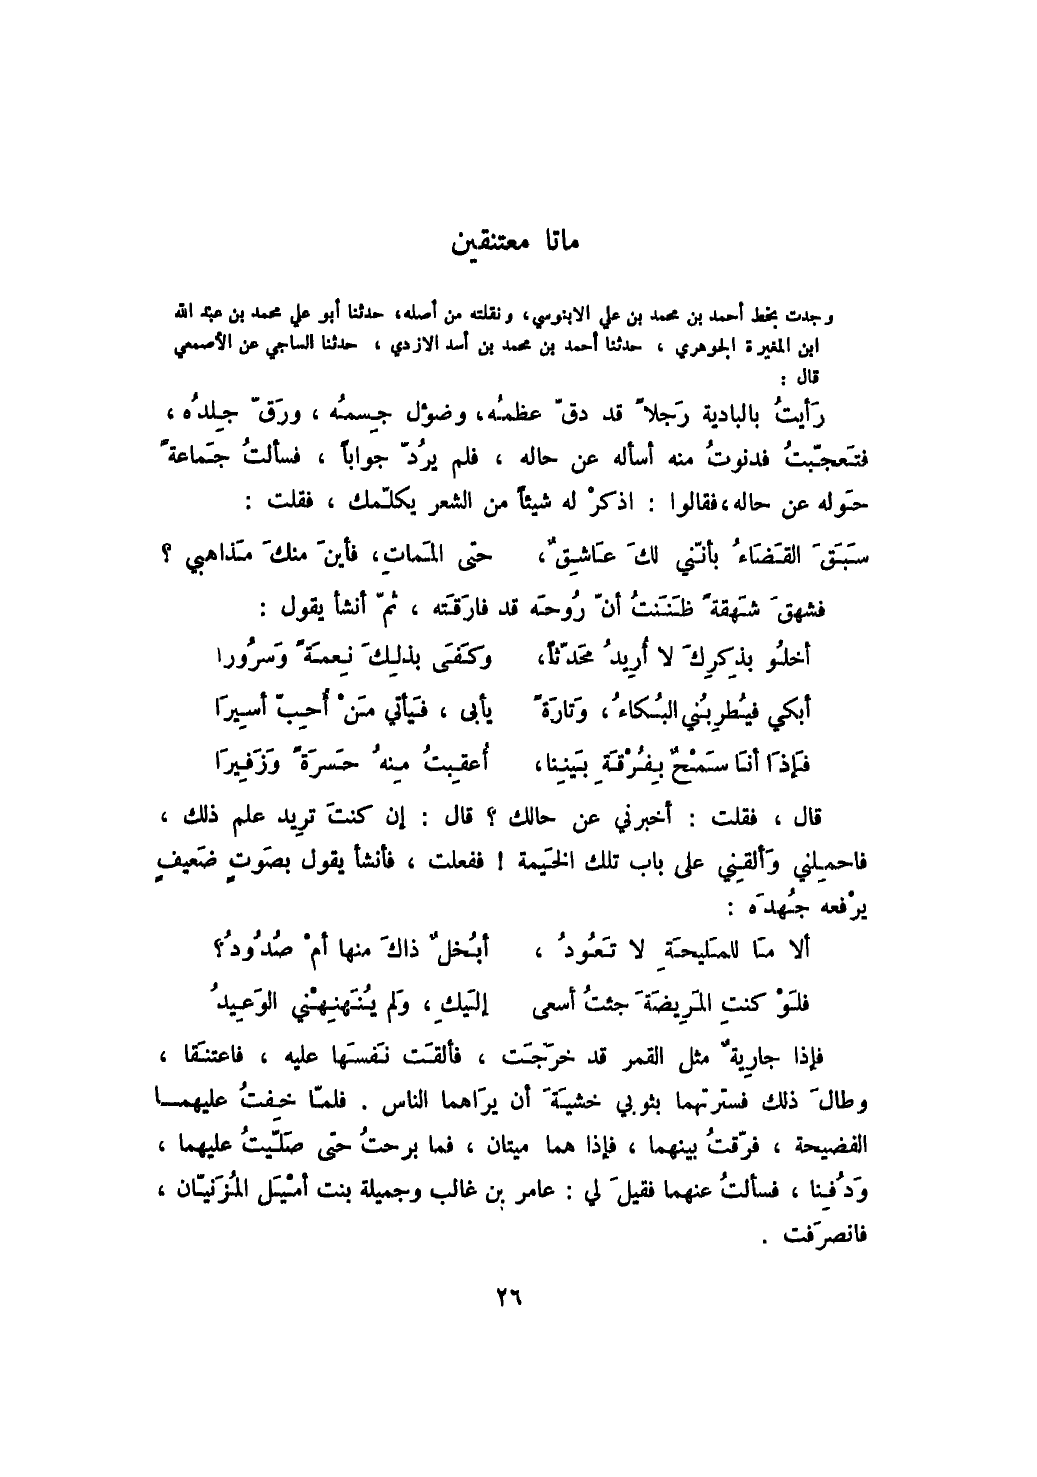 ماتا معتنقين
وجدت بخط أحمد بن محمد بن علي الابنوسي، ونقلته من أصله، حدثنا أبو علي محمد بن عبد الله
ابن المغيرة الجوهري ، حدثنا أحمد بن محمد بن أسد الازدي ، حدثنا الساجي عن الأصمعي
قال :
رَأيتُ بالبادية رَجلاً قد دقّ عظمُه، وضؤل جِسمُه ، ورَقّ جِلدُه ،
فتَعجّبتُ فدنوتُ منه أسأله عن حاله ، فلم يرُدّ جواباً ، فسألتُ جَماعةً
حَوله عن حاله، فقالوا : اذكرْ له شيئاً من الشعر يكلّمك ، فقلت :
سَبَقَ القَضَاءُ بأنّني لكَ عَاشِقٌ، حتّى المَماتِ، فأينَ منكَ مَذاهبي ؟
فشهقَ شَهقةً ظنَنتُ أنّ رُوحَه قد فارَقَته ، ثمّ أنشأ يقول :
أخلُو بذِكرِكَ لا أُريدُ محَدّثاً، وكَفَى بذلِكَ نِعمَةً وَسرُورا
أبكي فيُطرِبُني البُكاءُ، وَتارَةً يأبى ، فَيَأتي مَنْ أُحِبّ أسِيرَا
فَإذَا أنَا سَمْحٌ بِفُرْقَةِ بَينِنا، أُعقِبتُ مِنهُ حَسرَةً وَزَفِيرَا
قال ، فقلت : أخبرني عن حالك ؟ قال : إن كنتَ تريد علم ذلك ،
فاحمِلني وَألقِني على باب تلك الخَيمة ! ففعلت ، فأنشأ يقول بصَوتٍ ضَعيفٍ
يرْفعه جُهدَه :
ألا مَا للمَليحَةِ لا تَعُودُ ، أبُخلٌ ذاكَ منها أمْ صُدُودُ؟
فلَوْ كنتِ المَرِيضَةَ جئتُ أسعى إلَيكِ ، وَلم يُنَهنِهْني الوَعِيدُ
فإذا جارِيةٌ مثل القمر قد خرَجَت ، فألقَت نَفسَها عليه ، فاعتنَقا ،
وطالَ ذلك فسترتهما بثوبي خشيَةَ أن يرَاهما الناس . فلمّا خِفتُ عليهمـا
الفضيحة ، فرّقتُ بينهما ، فإذا هما ميتان ، فما برحتُ حتّى صَلّيتُ عليهما ،
وَدُفِنا ، فسألتُ عنهما فقيلَ لي : عامر بن غالب وجميلة بنت أمْيَل المُزَنيّان ،
فانصرَفت .
٢٦